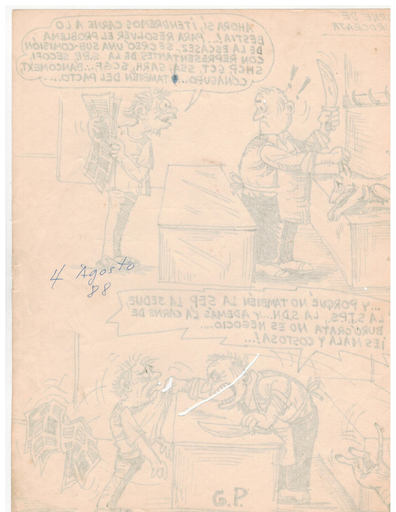 AHORA SI ¡TENDREMOS CARNE A LO
BESTIA! ... PARA RESOLVER EL PROBLEMA
DE LA ESCASEZ, SE CREÓ UNA SUB-COMISIÓN
CON REPRESENTANTES DE LA SPP, SECOFI,
SHCP, SCT, SSA, SARH, ... BANCOMEXT,
CONASUPO... Y TAMBIEN DEL PACTO...
4 Agosto
88
...Y PORQUÉ NO TAMBIEN LA SEP LA SEDUE
LA STPS, LA SDN, Y ADEMÁS LA CARNE DE
BURÓCRATA NO ES NEGOCIO...
¡ES MALA Y COSTOSA!...
G.P.